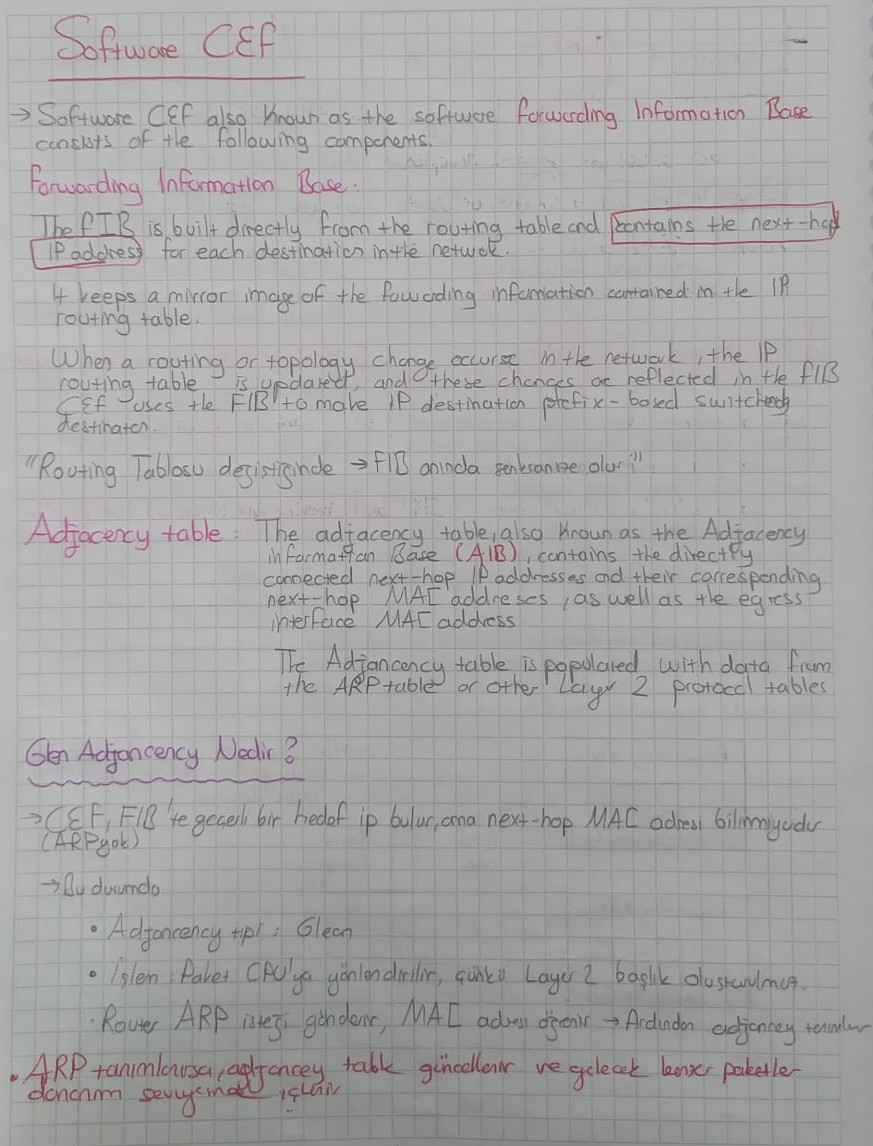 Software CEF
→ Software CEF also known as the software Forwarding Information Base
consists of the following components.
Forwarding Information Base.
The FIB is built directly from the routing table and contains the next-hop
IP address for each destination in the network.
It keeps a mirror image of the forwarding information contained in the IP
routing table.
When a routing or topology change occurse in the network, the IP
routing table is updated, and these changes are reflected in the FIB
CEF uses the FIB to make IP destination prefix-based switching
destination.
"Routing Tablosu degistiginde → FIB anında senkronize olur"
Adjacency table: The adjacency table, also known as the Adjacency
information Base (AIB), contains the directly
connected next-hop IP addresses and their corresponding
next-hop MAC addreses, as well as the egress
interface MAC address
The Adjancency table is populated with data from
the ARP table or other Layer 2 protocol tables
Glen Adjancency Nedir?
→ CEF, FIB'te geçerli bir hedef ip bulur, ama next-hop MAC adresi bilinmiyodur
(ARP yok)
→ Bu durumda
• Adjancency tipi: Glean
• İşlem: Paket CPU'ya yönlendirilir, çünkü Layer 2 başlık oluşturulmaz.
· Router ARP isteği gönderir, MAC adresi öğrenir → Ardından adjancney
• ARP tanımlanırsa, adjancey table güncellenir ve gelecek benzer paketler
donanım seviyesinde işlenir